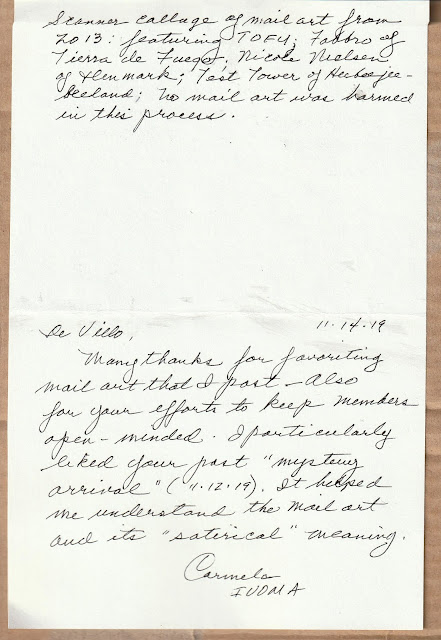 Scanner collage of mail art from
2013: featuring TOFU; Fabbro of
Tierra de Fuego; Nicole Nielsen
of Denmark; Test Tower of
land; no mail art was harmed
in this process.
De Villo, 11.14.19
Many thanks for favoriting
mail art that I post – Also
for your efforts to keep members
open-minded. I particularly
liked your post "mystery
arrival" (11.12.19). It helped
me understand the mail art
and its "satirical" meaning.
Carmela
IUOMA